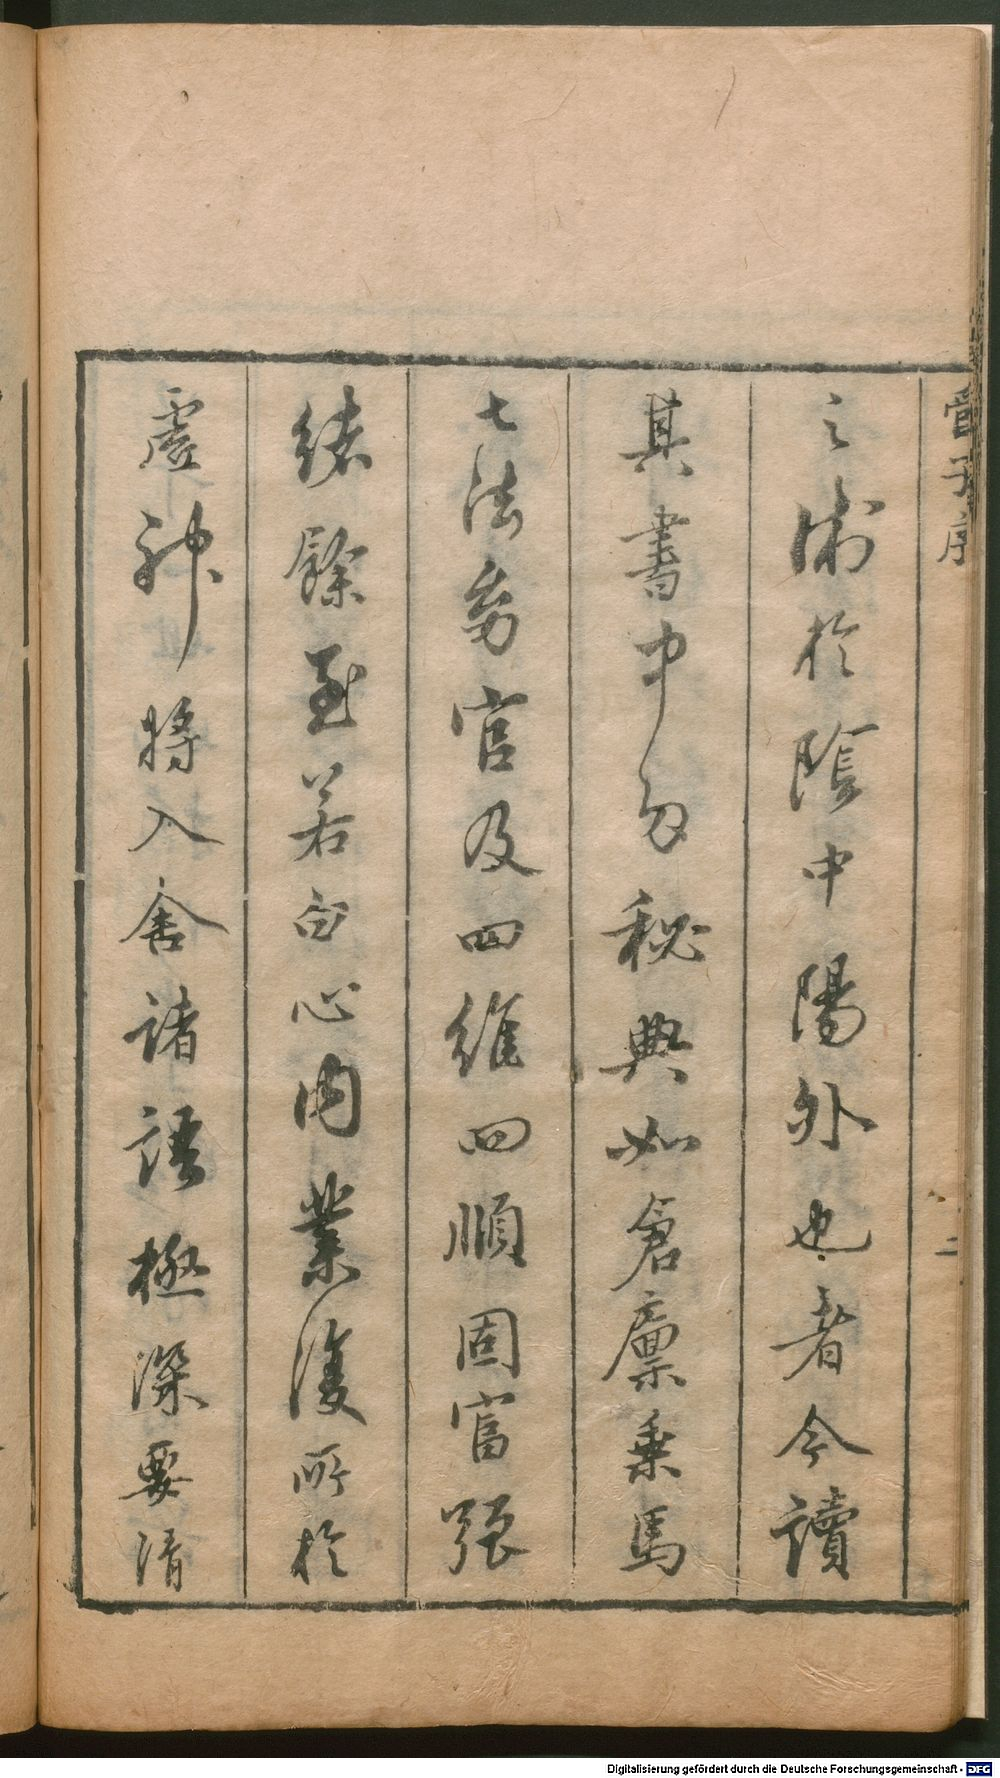 管子序
二
之術於陰中陽外也者今讀
其書中多秘典如倉廩乗馬
七法幼官及四維四順固富强
緒餘至若白心内業復所於
虚神將入舍諸語極深要清
Digitalisierung gefördert durch die Deutsche Forschungsgemeinschaft - DFG